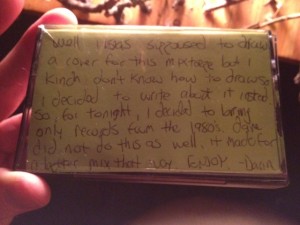 Well I was supposed to draw
a cover for this mixtape but I
kinda don't know how to draw so
I decided to write about it instead
So, for tonight, I decided to bring
only records from the 1980s.
did not do this as well. it made for
a better mix that way. ENJOY. -